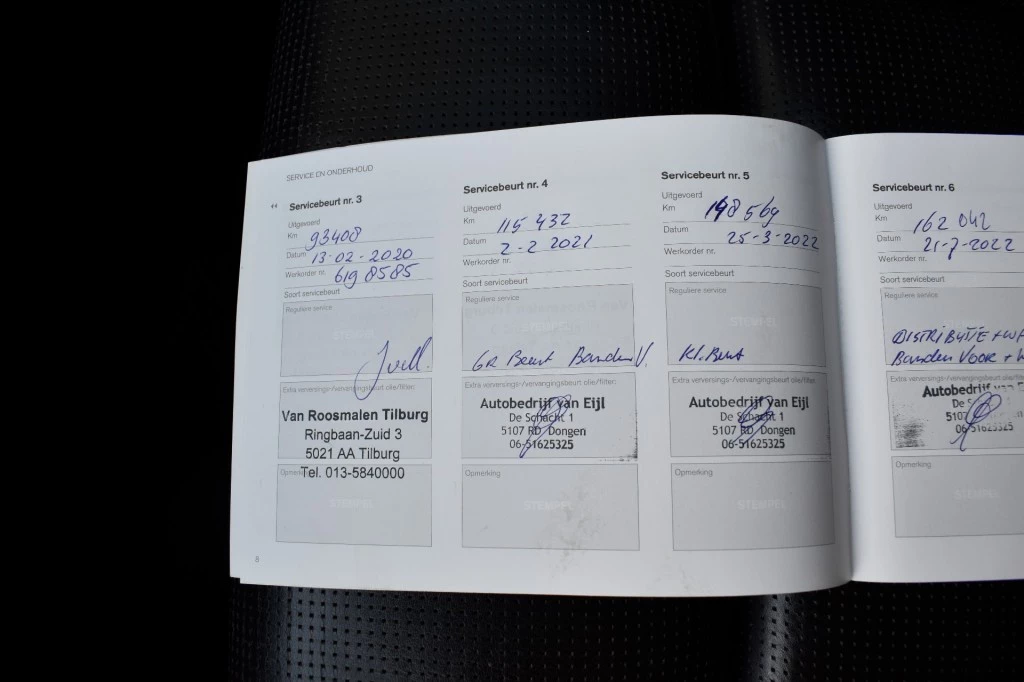 SERVICE EN ONDERHOUD
Servicebeurt nr. 3
Uitgevoerd
Km 93408
Datum 13-02-2020
Werkorder nr. 6198585
Soort servicebeurt
Reguliere service
STEMPEL
Extra verversings-/vervangingsbeurt olie/filter:
Van Roosmalen Tilburg
Ringbaan-Zuid 3
5021 AA Tilburg
Opmerking
Tel. 013-5840000
STEMPEL
8
Servicebeurt nr. 4
Uitgevoerd
Km 115 432
Datum 2-2 2021
Werkorder nr.
Soort servicebeurt
Reguliere service
GR Beurt Banden V.
Extra verversings-/vervangingsbeurt olie/filter:
Autobedrijf van Eijl
De Schacht 1
5107 RD Dongen
06-51625325
Opmerking
STEMPEL
Servicebeurt nr. 5
Uitgevoerd
Km 148 569
Datum 25-3-2022
Werkorder nr.
Soort servicebeurt
Reguliere service
STEMPEL
Kl. Beurt
Extra verversings-/vervangingsbeurt olie/filter:
Autobedrijf van Eijl
De Schacht 1
5107 RD Dongen
06-51625325
Opmerking
STEMPEL
Servicebeurt nr. 6
Uitgevoerd
Km 162 042
Datum 21-7-2022
Werkorder nr.
Soort servicebeurt
Reguliere service
DISTRIBUTIE +WP
Banden VOOR +
Extra verversings-/vervangingsbeurt olie/filter:
Autobedrijf van
De
5107 Dongen
06-51625325
Opmerking
STEMPEL